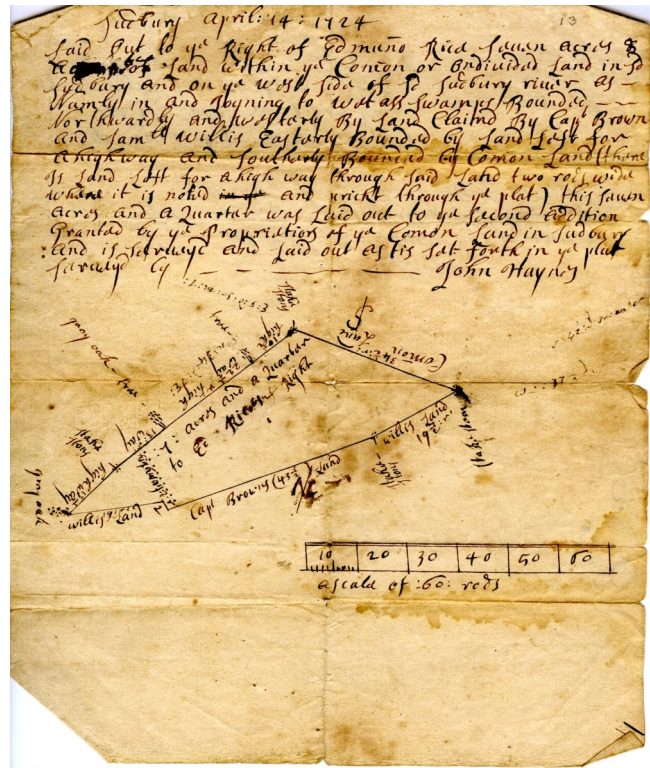 Sudbury April: 14: 1724
13
Laid out to ye Right of Edmund Rice Seuen acres &
a land within ye Comon or Ondivided Land in Sd
Sudbury and on ye west side of Sd Sudbury river as
Namly in and Joyning to Swamp Bounded
Northwardly and westerly By Land Claimd By Capt Brown
and Samll Willis Easterly Bounded by Land Left for
a high way and Southerly Bounded by Comon Land (there
is Land Left for a high way through said Land two rods wide
where it is noted and prickt through ye plat) this Seuen
acres and a Quarter was Laid out to ye Second
Granted by ye Propriators of ye Comon Land in Sudbury
and is Survayd and Laid out as tis Sat forth in ye plat
Survayd by John Haynes
Stake
Stons
gray oak tree
high way
Comon Land 34
7: acres and a Quarter
to Ed Rices Right
Stake
Stons
high way
gray oak
willis Land
Capt Browns (43 Land
Stake
Stons
willis Land
19
Stake Stons
10 20 30 40 50 60
a scale of :60: rods